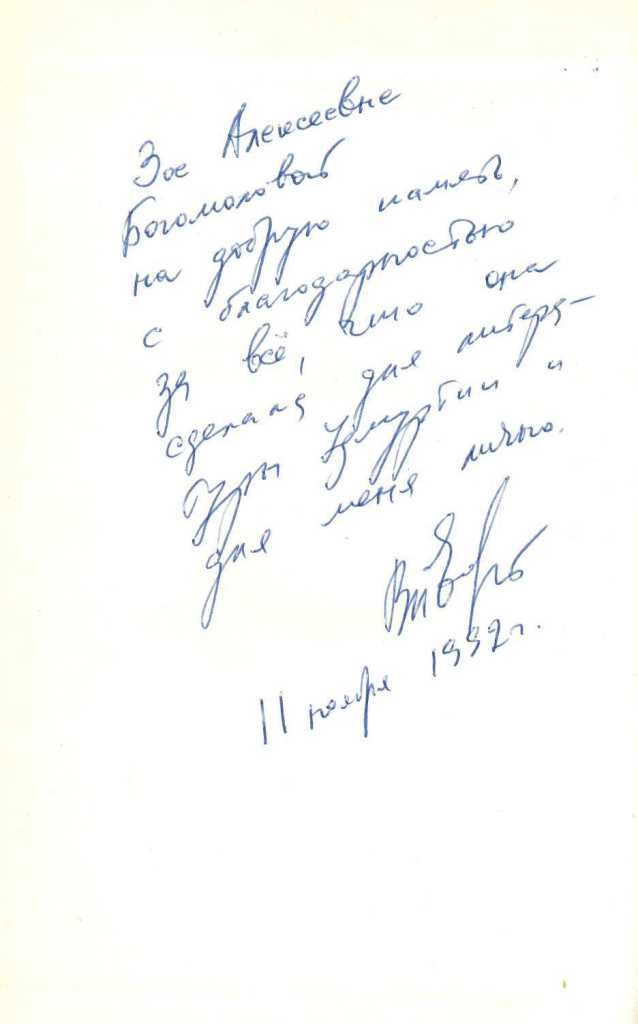 Зое Алексеевне
Богомоловой
на добрую память,
с благодарностью
за всё, что она
сделала для литера-
туры Удмуртии и
для меня лично.
11 ноября 1992 г.